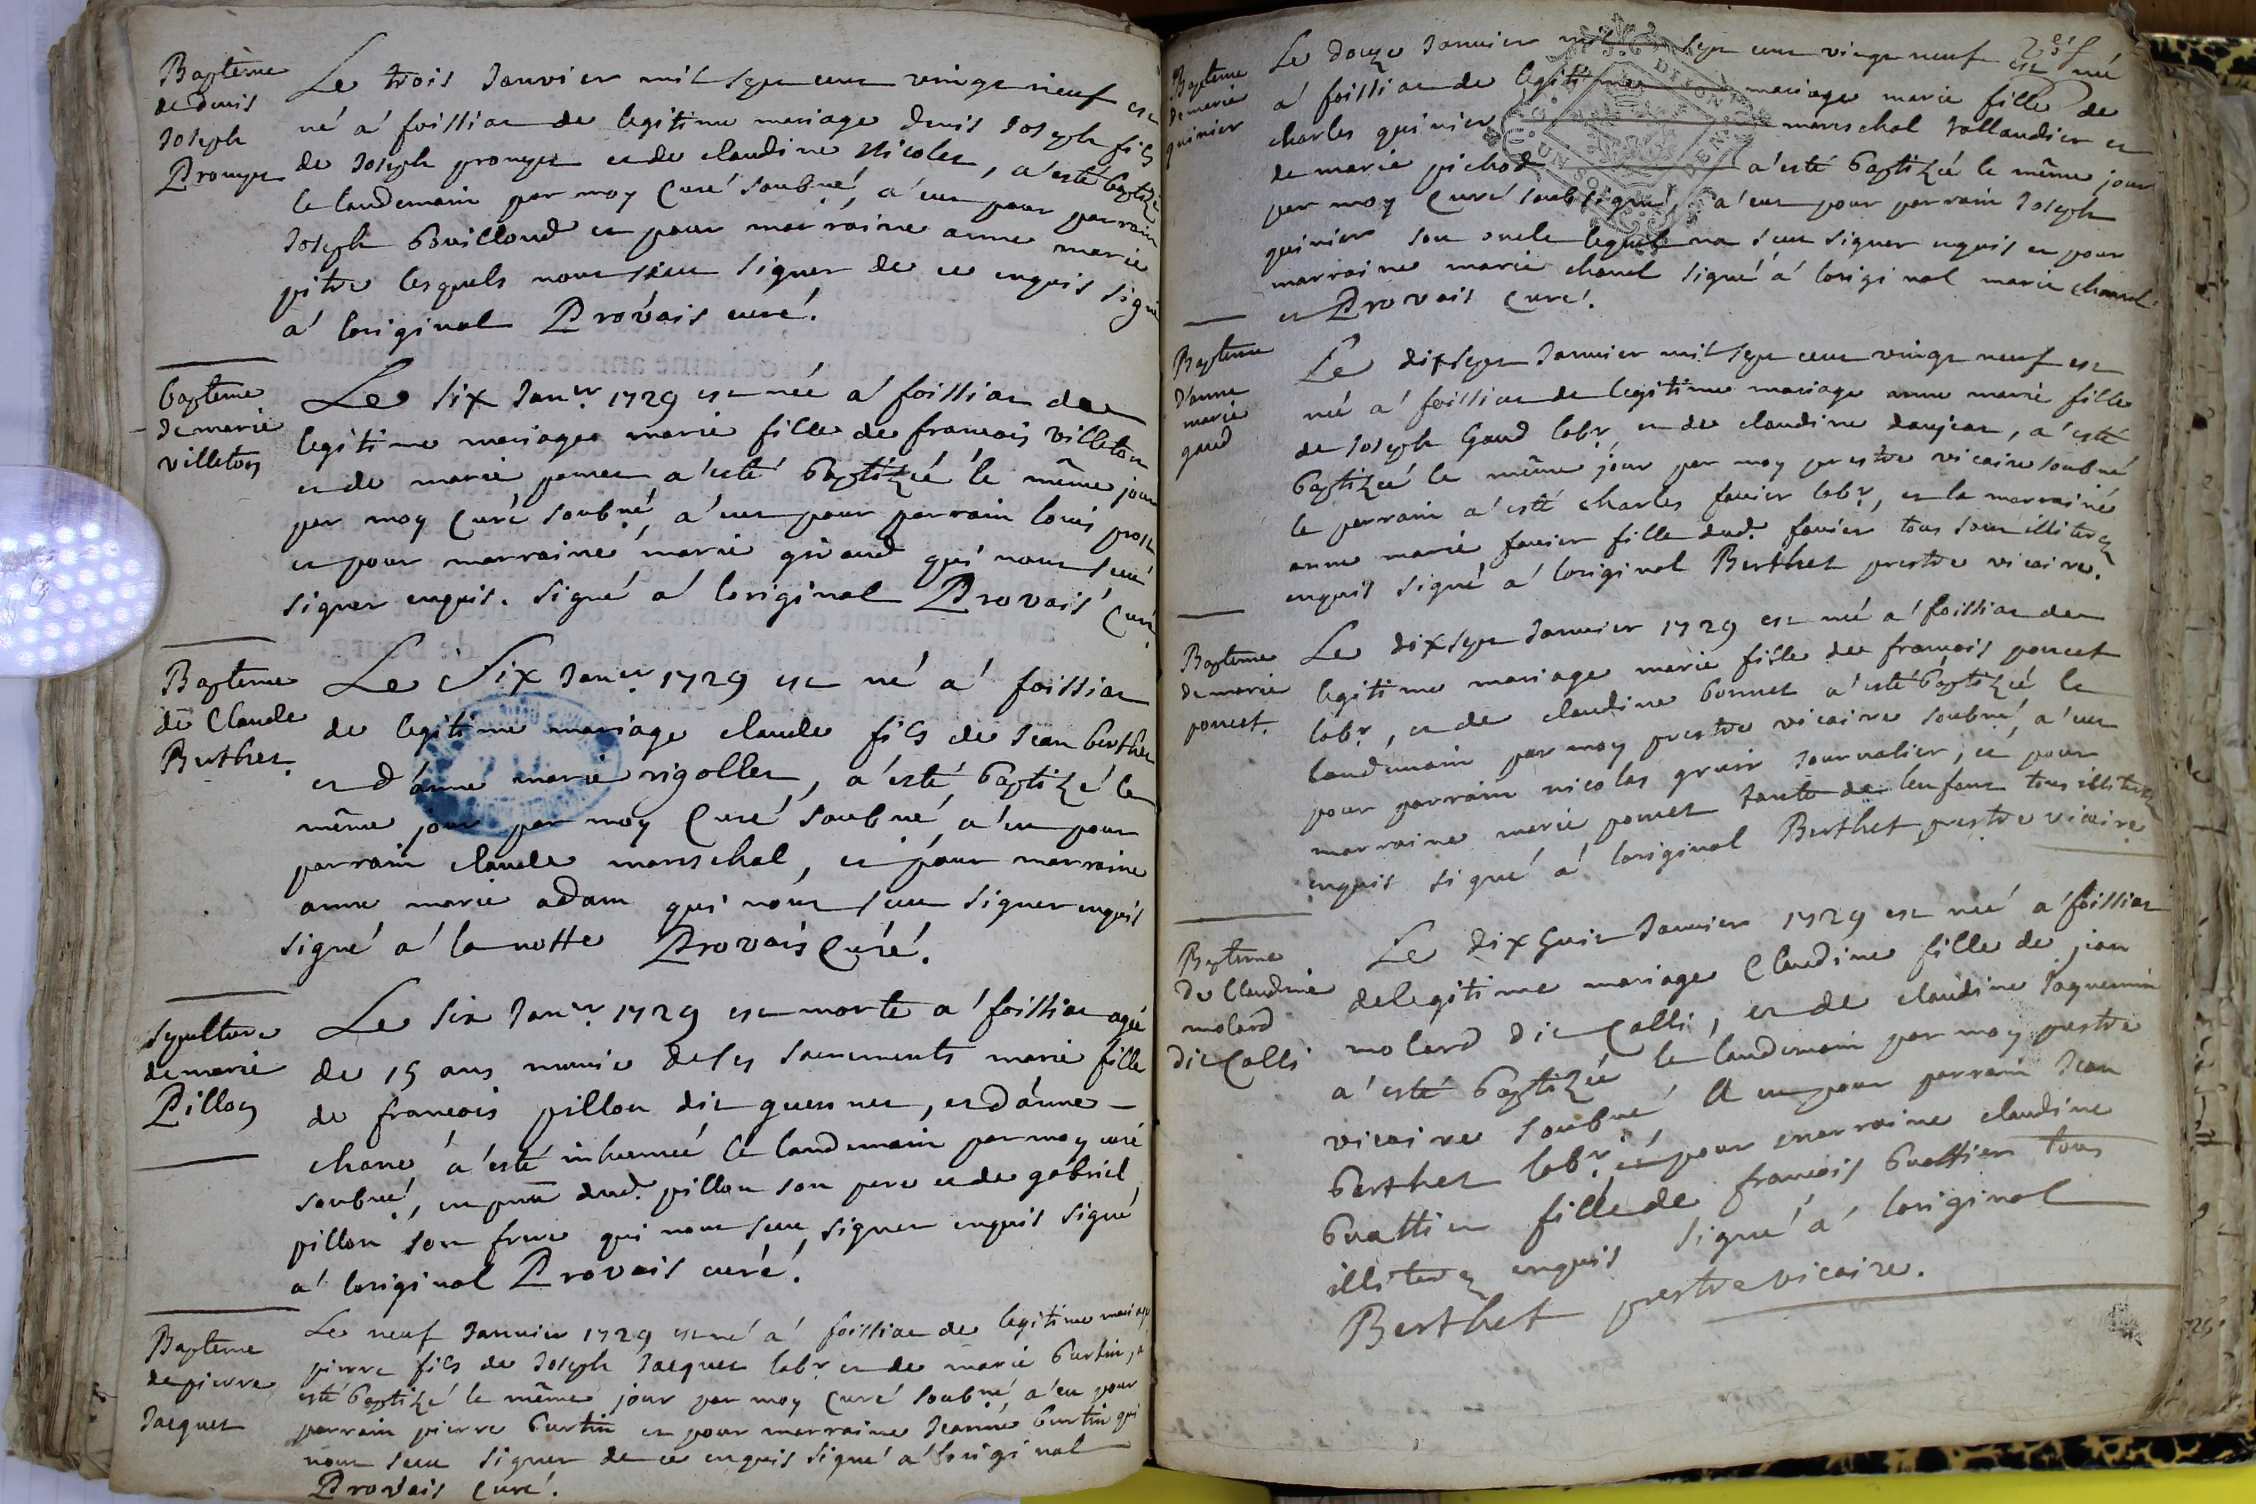 Baptême
de denis
Joseph
Promps
Le trois Janvier mil sept cent vingt neuf est
né a' foissiat de legitime mariage denis Joseph fils
de Joseph promps et de claudine Nicolet, a'esté baptizé
le landemain par moy Curé soubné, a'eut pour parrain
Joseph bouilloud et pour marraine anne marie
pitre lesquels nont sceu signer de ce enquis signé
a' loriginal Provais curé.
baptême
de marie
villeton
Le six Janer 1729 est née a' foissiat de
legitime mariage marie fille de francois villeton
et de marie poncet a'esté baptizée le même jour
par moy Curé soubné, a'eut pour parrain louis prost
et pour marraine marie giraud qui nont sceu
signer enquis. signé a' loriginal Provais Curé
Baptême
de Claude
Berthet
Le Six Janer 1729 est né a' foissiat
de legitime mariage claude fils de Jean berthet
et d'anne marie rigollet, a'esté baptizé le
même jour par moy Curé soubné, a'eu pour
parrain claude mareschal, et pour marraine
anne marie adam qui nont sceu signer enquis
signé a' la notte Provais Curé.
sepulture
de marie
Pillon
Le six Janer 1729 est morte a' foissiat agée
de 15 ans munie de ses sacrements marie fille
de francois pillon dit guesnet, et d'anne
chanel a'esté inhumée le landemain par moy curé
soubné, en pnce dud. pillon son pere et de gabriel
pillon son frere qui nont sceu signer enquis signé
a' loriginal Provais curé.
Baptême
de pierre
Jacquet
Le neuf Janvier 1729 est né a' foissiat de legitime mariage
pierre fils de Joseph Jacquet labr. et de marie burtin, a
esté baptizé le même jour par moy Curé soubné, a'eu pour
parrain pierre burtin et pour marraine Jeanne burtin qui
nont sceu signer de ce enquis signé a' loriginal
Provais Curé.
Baptême
de marie
quinier
Le douze Janvier mil sept cent vingt neuf est né
a' foissiat de legitime mariage marie fille de
charles quinier mareschal taillandier et
de marie pichod a'esté baptizée le même jour
par moy Curé soubsigné, a'eut pour parrain Joseph
quinier son oncle lequel na sceu signer enquis et pour
marraine marie chanel signé a' loriginal marie chanel
et Provais Curé.
Baptême
d'anne
marie
gaud
Le dixsept Janvier mil sept cent vingt neuf est
né a' foissiat de legitime mariage anne marie fille
de Joseph Gaud labr. et de claudine danjean, a'esté
baptizée le même jour par moy prestre vicaire soubné
le parrain a'esté charles favier labr., et la marraine
anne marie favier fille dud. favier tous sont illiterez
enquis signé a' loriginal Berthet prestre vicaire.
Baptême
de marie
poncet.
Le dixsept Janvier 1729 est né a' foissiat de
legitime mariage marie fille de francois poncet
labr., et de claudine bonnet a'esté baptizée le
landemain par moy prestre vicaire soubné, a'eut
pour parrain nicolas journalier, et pour
marraine marie poncet tante de lenfant tous illiterez
enquis signé a' loriginal Berthet prestre vicaire
Baptême
de Claudine
molard
dit Calli
Le dixhuit Janvier 1729 est née a' foissiat
de legitime mariage Claudine fille de jean
molard dit Calli, et de claudine Jaquemin
a'esté baptizée le landemain par moy prestre
vicaire soubné A eu pour parrain Jean
berthet labr. et pour marraine claudine
buattier fille de francois buattier tous
illiterez enquis signé a' loriginal
Berthet prestre vicaire.